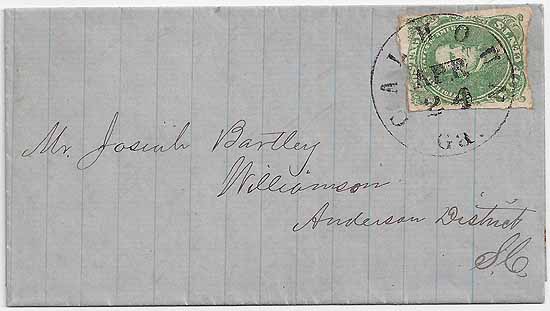 CALHOUN
APR
24
Ga.
Mr. Josiah Bartley
Williamson
Anderson District
S.C.